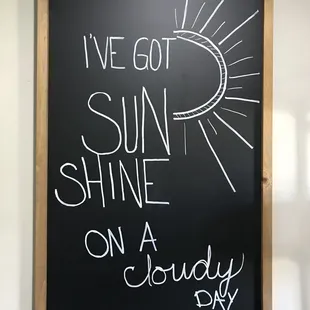 I'VE GOT
SUN
SHINE
ON A
cloudy
DAY